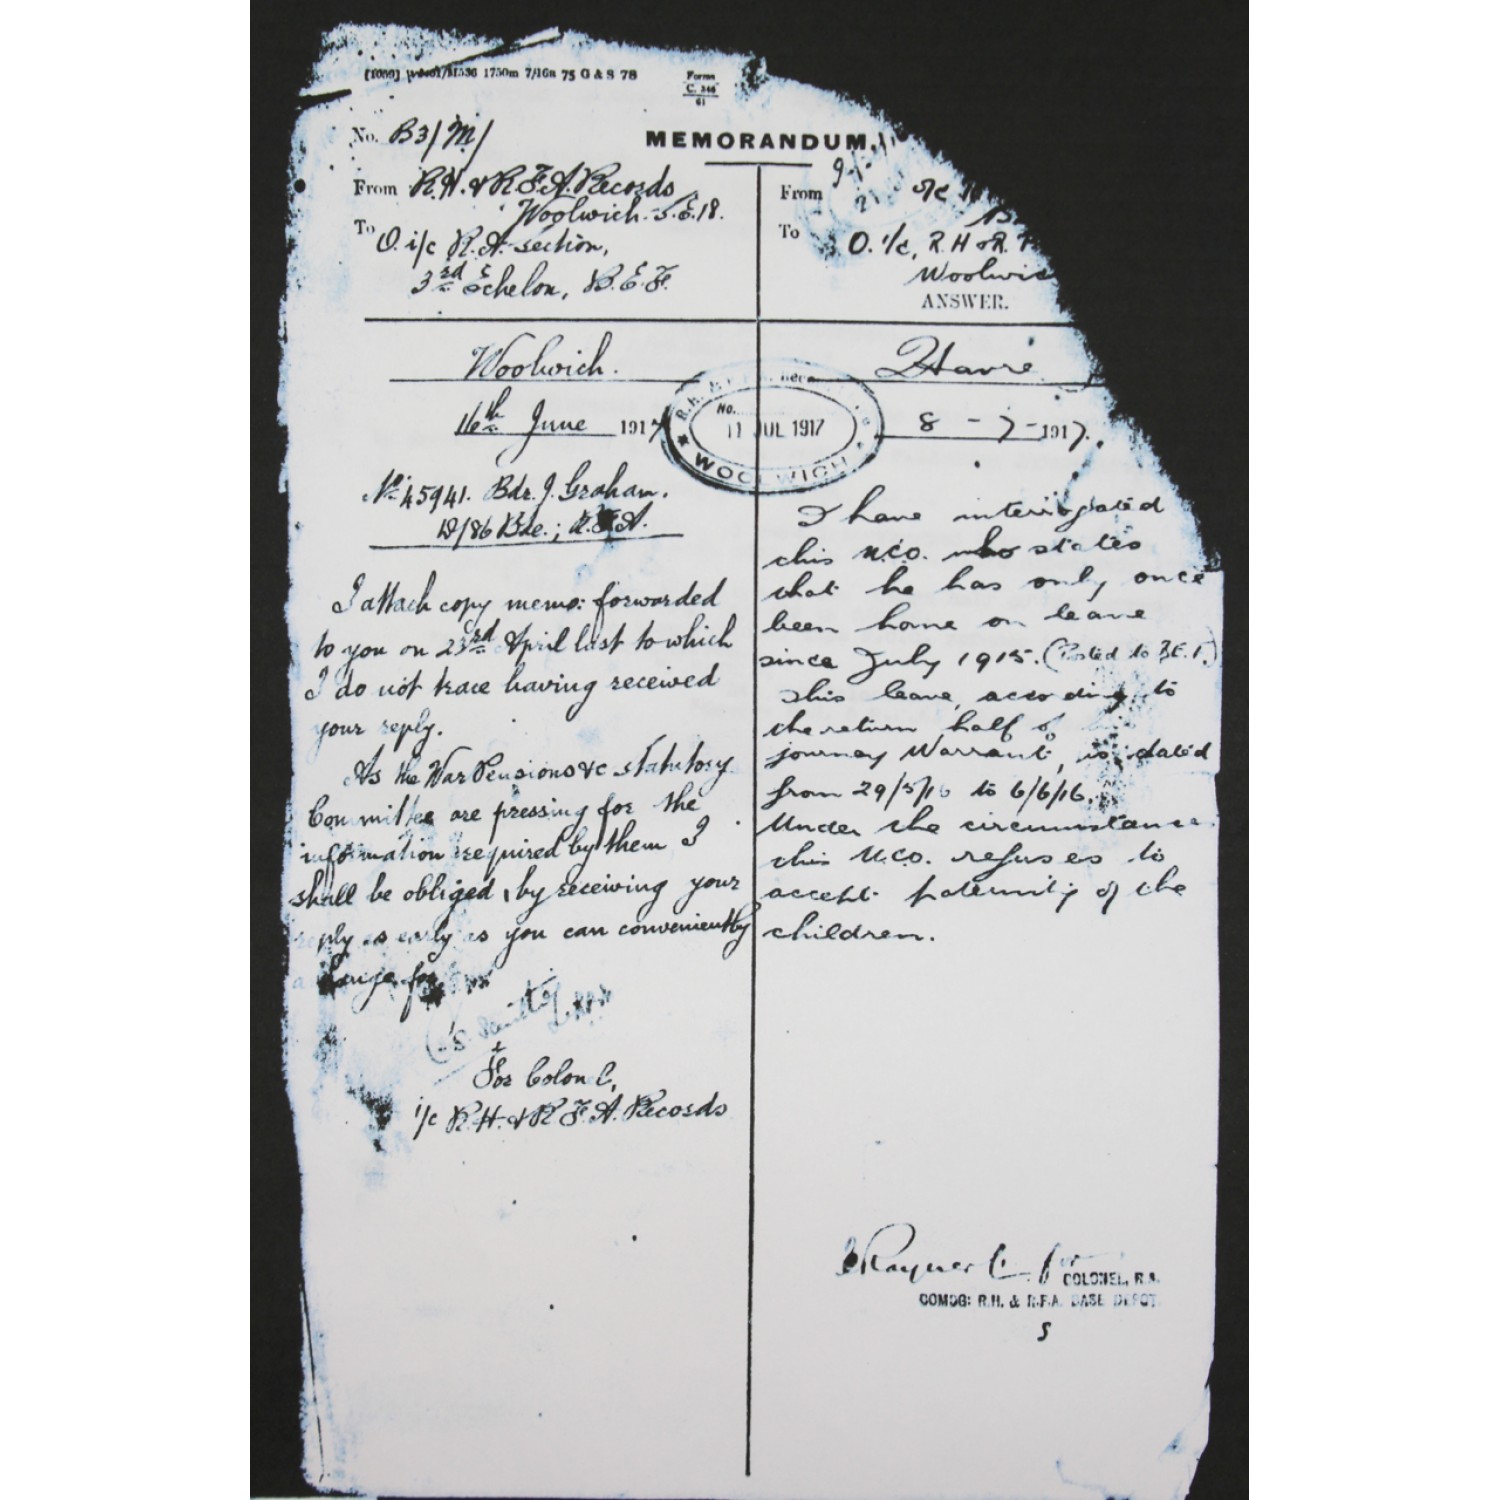 1750m 7/16n 75 G & S 78
Forms
C. 348
61
MEMORANDUM.
No. B3/M/
From R.H. & R.F.A. Records
Woolwich. S.E.18.
To O. i/c R.A. Section,
3rd Echelon, B.E.F.
Woolwich.
16th June 1917
No 45941. Bdr. J. Graham.
D/86 Bde.; R.F.A.
I attach copy memo: forwarded
to you on 23rd April last to which
I do not trace having received
your reply.
As the War Pensions &c Statutory
Committee are pressing for the
information required by them I
shall be obliged, by receiving your
reply as early as you can conveniently
for
For Colonel,
i/c R.H. & R.F.A. Records
R.H.
No.
11 JUL 1917
WOOLWICH
From
O/c
To O. i/c, R.H & R.
Woolwic
ANSWER.
Havre
8 - 7 - 1917.
I have interrogated
this N.C.O. who states
that he has only once
been home on leave
since July 1915. (Posted to B.E.F.)
This leave, according to
the return half of
journey Warrant, is dated
from 29/5/16 to 6/6/16.
Under the circumstance
this N.C.O. refuses to
accept paternity of the
children.
Rayner for
COLONEL, R.A.
COMDG: R.H. & R.F.A. BASE DEPOT
S